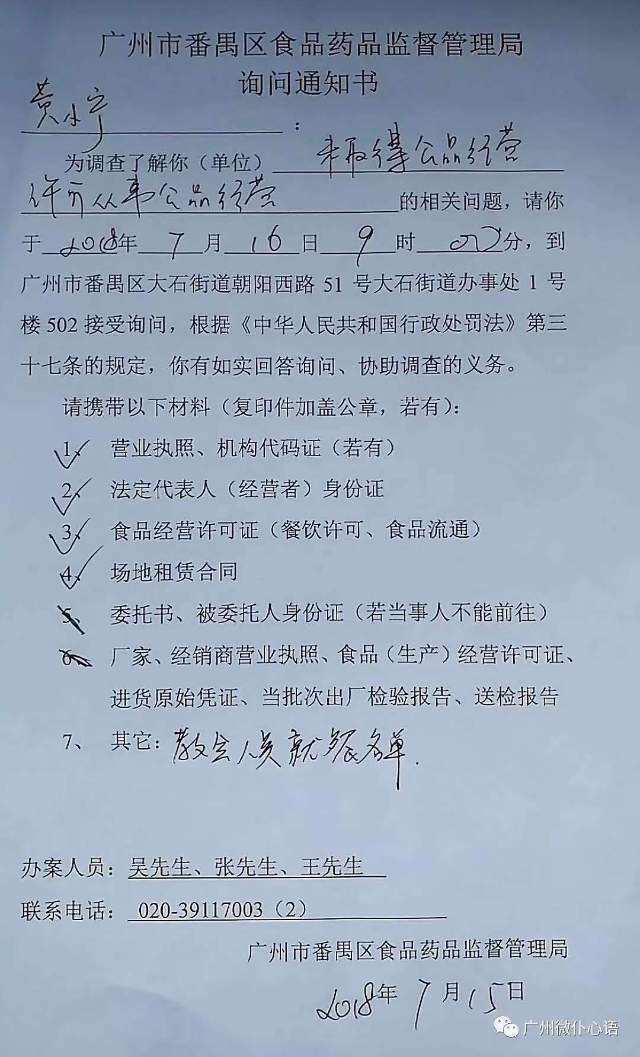 广州市番禺区食品药品监督管理局
询问通知书
黄小宁：
为调查了解你（单位）未取得食品经营
许可从事食品经营的相关问题，请你
于2018年7月16日9时00分，到
广州市番禺区大石街道朝阳西路51号大石街道办事处1号
楼502接受询问，根据《中华人民共和国行政处罚法》第三
十七条的规定，你有如实回答询问、协助调查的义务。
请携带以下材料（复印件加盖公章，若有）：
1、营业执照、机构代码证（若有）
2、法定代表人（经营者）身份证
3、食品经营许可证（餐饮许可、食品流通）
4、场地租赁合同
5、委托书、被委托人身份证（若当事人不能前往）
6、厂家、经销商营业执照、食品（生产）经营许可证、
进货原始凭证、当批次出厂检验报告、送检报告
7、其它：教会人员就餐名单.
办案人员：吴先生、张先生、王先生
联系电话：020-39117003（2）
广州市番禺区食品药品监督管理局
2018年7月15日
广州微仆心语